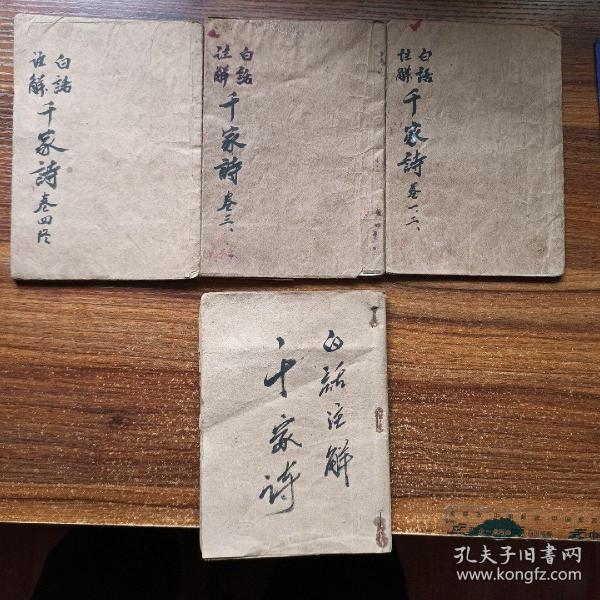 白話
註解
千家詩 卷四終
白話
註解
千家詩 卷三、
白話
註解
千家詩 卷一、二、
白話注解
千家诗
孔夫子旧书网
www.kongfz.com